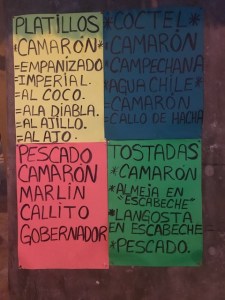 PLATILLOS
*CAMARÓN*
=EMPANIZADO
=IMPERIAL.
=AL COCO.
=A LA DIABLA.
=AL AJILLO.
=AL AJO.
*COCTEL*
*CAMARÓN
*CAMPECHANA
*AGUA CHILE*
=CAMARÓN
=CALLO DE HACHA
PESCADO
CAMARÓN
MARLIN
CALLITO
GOBERNADOR
TOSTADAS
*CAMARÓN
*ALMEJA EN
"ESCABECHE"
*LANGOSTA
EN ESCABECHE
*PESCADO.